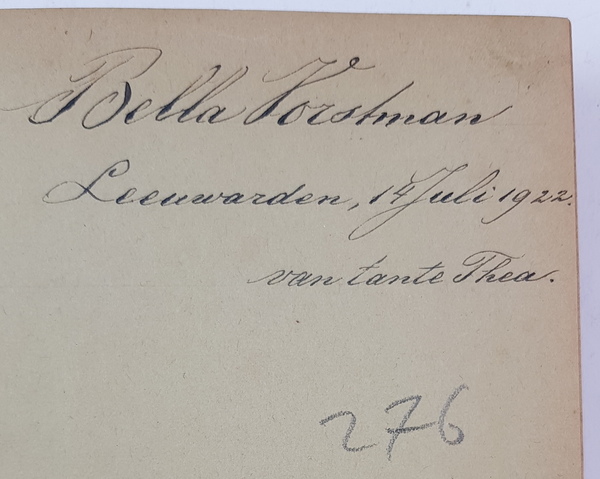 Bella Vorstman
Leeuwarden, 14 Juli 1922.
van tante Thea.
276